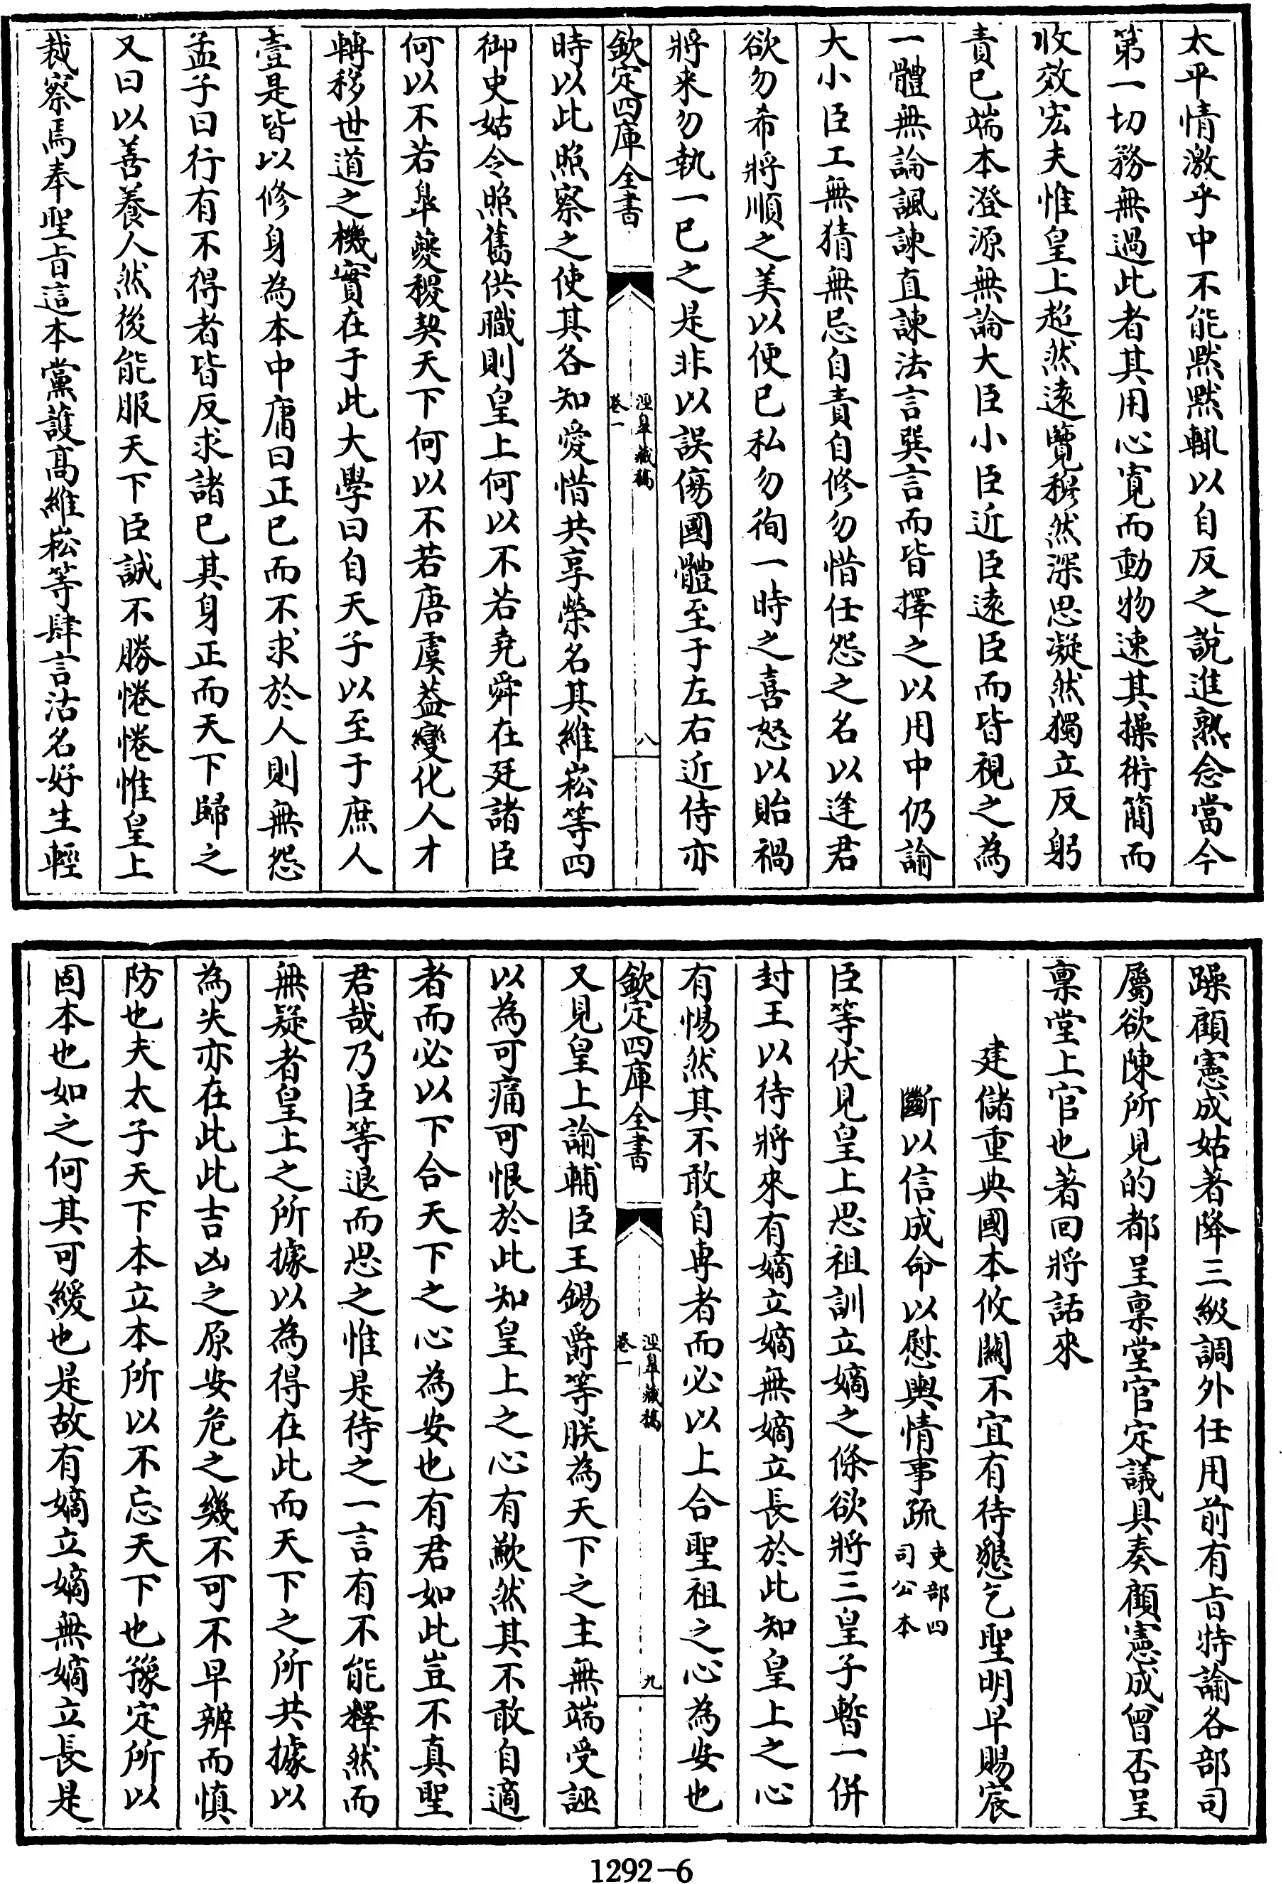 太平情激乎中不能黙黙輒以自反之說進熟念當今
第一切務無過此者其用心寛而動物速其操術簡而
收效宏夫惟皇上超然遠覽穆然深思凝然獨立反躬
責已端本澄源無論大臣小臣近臣遠臣而皆視之為
一體無論諷諫直諫法言巽言而皆擇之以用中仍諭
大小臣工無猜無忌自責自修勿惜任怨之名以逢君
欲勿希將順之美以便已私勿徇一時之喜怒以貽禍
將来勿執一已之是非以誤傷國體至于左右近侍亦
欽定四庫全書
涇臯藏稿
卷一
八
時以此照察之使其各知愛惜共享榮名其維崧等四
御史姑令照舊供職則皇上何以不若堯舜在廷諸臣
何以不若臯夔稷契天下何以不若唐虞益變化人才
轉移世道之機實在于此大學曰自天子以至于庶人
壹是皆以修身為本中庸曰正已而不求於人則無怨
孟子曰行有不得者皆反求諸已其身正而天下歸之
又曰以善養人然後能服天下臣誠不勝惓惓惟皇上
裁察焉奉聖旨這本黨護髙維崧等肆言沽名好生輕
躁顧憲成姑著降三級調外任用前有旨特諭各部司
屬欲陳所見的都呈稟堂官定議具奏顧憲成曾否呈
稟堂上官也著回將話來
建儲重典國本攸關不宜有待懇乞聖明早賜宸
斷以信成命以慰輿情事疏
吏部四
司公本
臣等伏見皇上思祖訓立嫡之條欲將三皇子暫一併
封王以待將來有嫡立嫡無嫡立長於此知皇上之心
有惕然其不敢自專者而必以上合聖祖之心為安也
欽定四庫全書
涇臯藏稿
卷一
九
又見皇上諭輔臣王錫爵等朕為天下之主無端受誣
以為可痛可恨於此知皇上之心有歉然其不敢自適
者而必以下合天下之心為安也有君如此豈不真聖
君哉乃臣等退而思之惟是待之一言有不能釋然而
無疑者皇上之所據以為得在此而天下之所共據以
為失亦在此此吉凶之原安危之幾不可不早辨而慎
防也夫太子天下本立本所以不忘天下也豫定所以
固本也如之何其可緩也是故有嫡立嫡無嫡立長是
1292-6